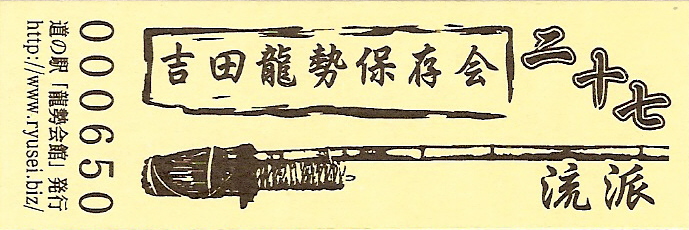 吉田龍勢保存会
二十七
流派
000650
道の駅「龍勢会館」発行
http://www.ryusei.biz/